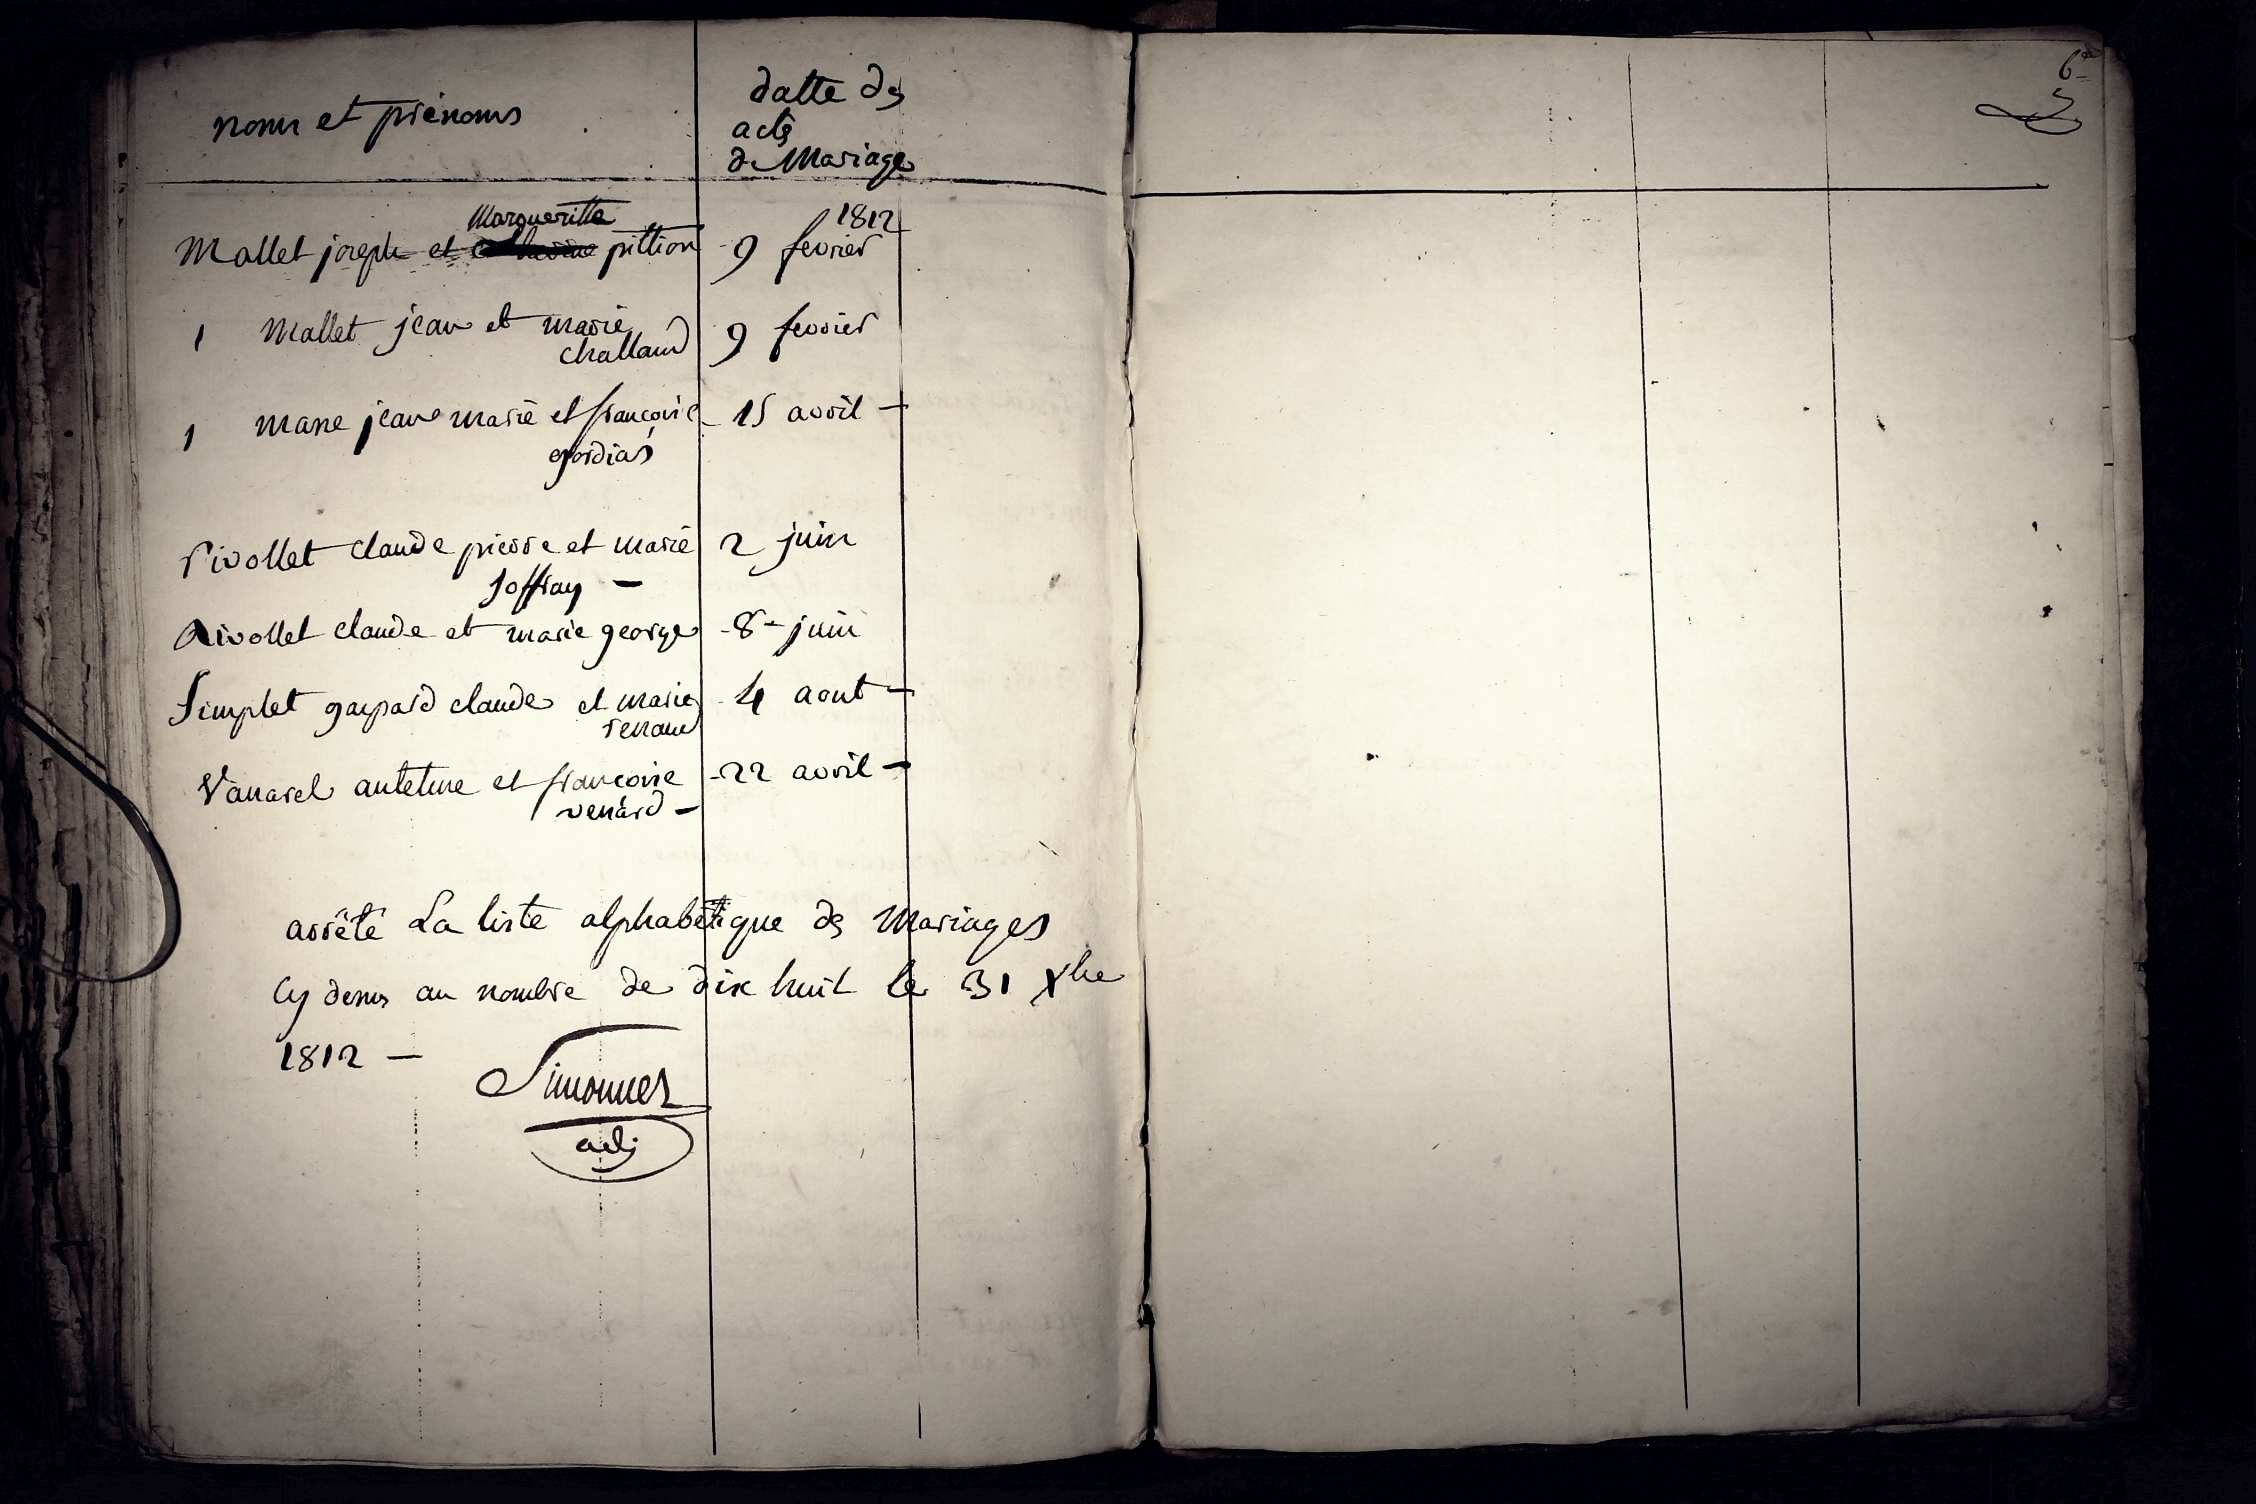 noms et prénoms
datte des
actes
de Mariage
1812
Margueritte
Mallet joseph et pittion 9 fevrier
1 Mallet jean et marie 9 fevrier
challand
1 mane jean marie et francoise 15 avril
Pivollet claude pierre et marie 2 juin
joffray
Rivollet claude et marie george 8 juin
Simplet gaspard claude et marie 4 aout
renaud
Vanarel antelme et francoise 22 avril
venard
arrêté La liste alphabétique des Mariages
Cy dessus au nombre de dix huit le 31 Xbre
1812
Simonnet
adj
6